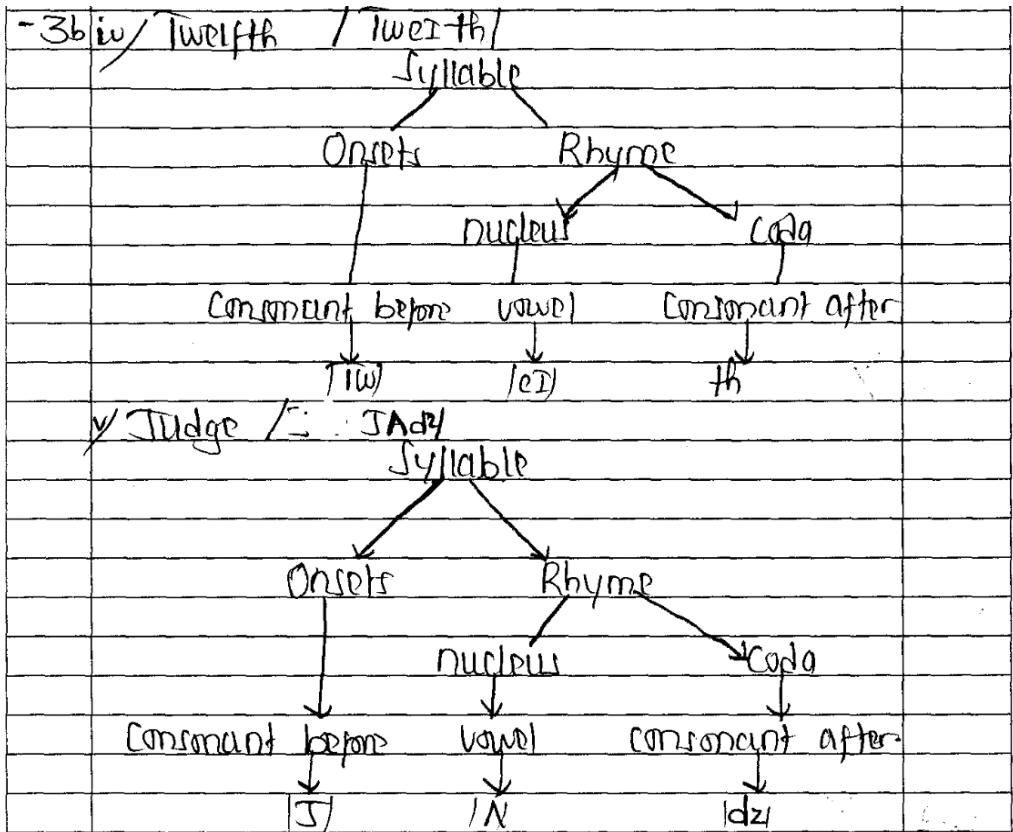 -3b iv/ Twelfth /TweI-th/
Syllable
Onsets Rhyme
nucleus coda
Consonant before vowel Consonant after
/Tw/ /eI/ th
v/ Judge /JAdz/
Syllable
Onsets Rhyme
nucleus Coda
Consonant before vowel consonant after
/J/ /N /dz/